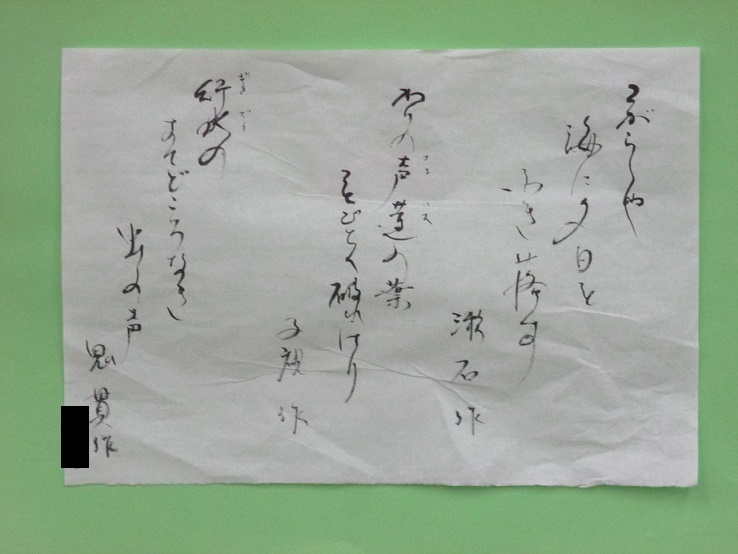 こがらしや
海に夕日を
ふき落す
漱石作
かりの声蓮の葉
ことごとく破れけり
子規作
行水の
すてどころなき
虫の声
鬼貫作